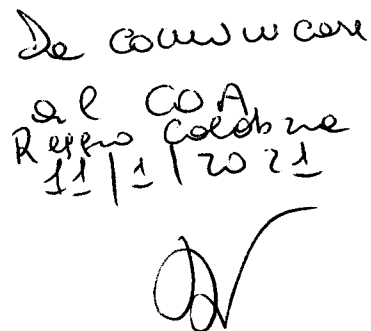 Da comunicare
al COA
Reggio Calabria
11/1/2021